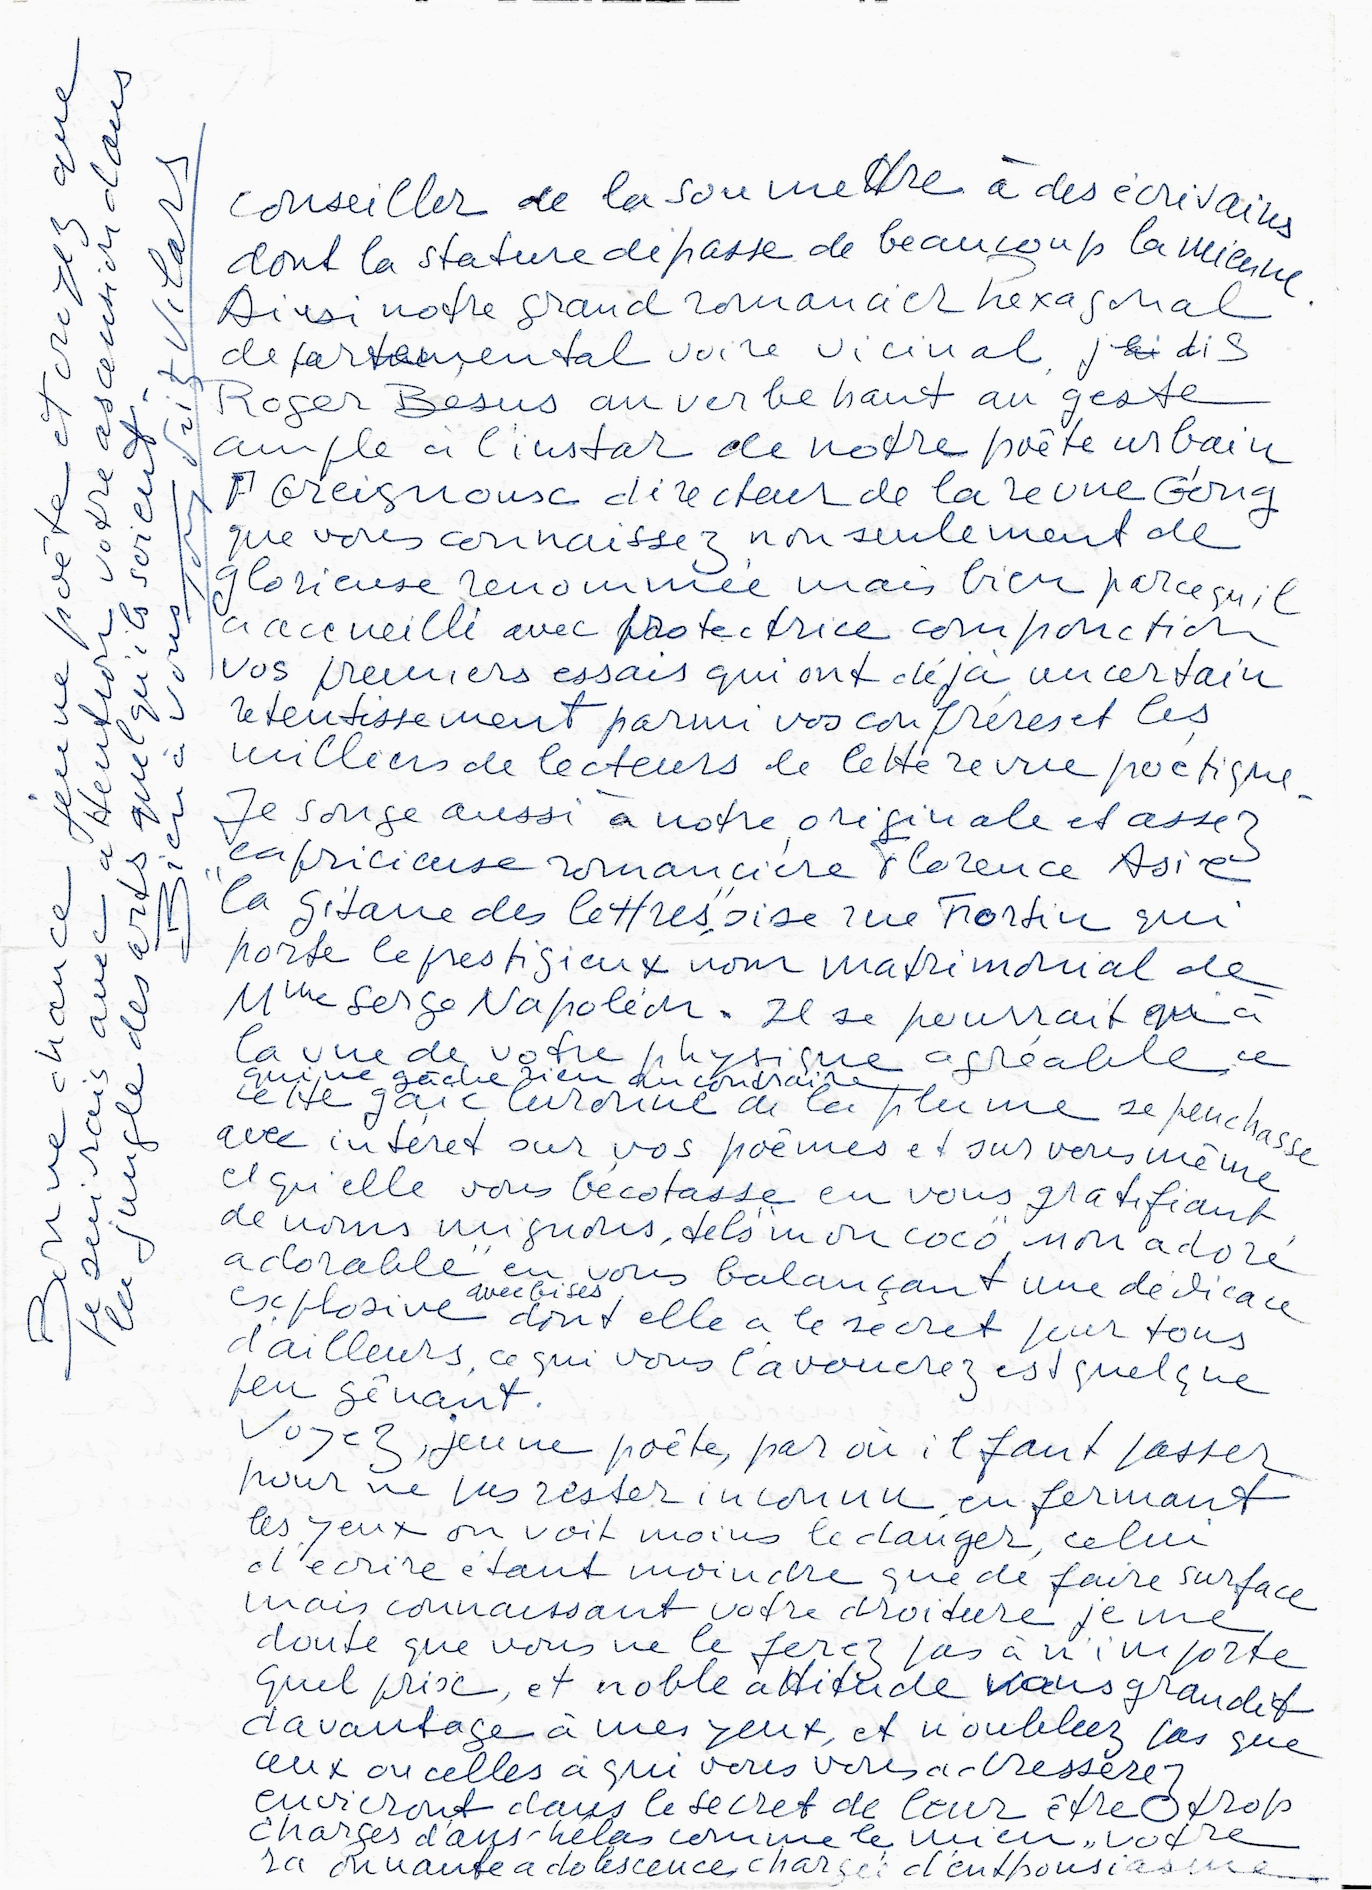 conseiller de la soumettre à des écrivains
dont la stature dépasse de beaucoup la mienne.
Ainsi notre grand romancier hexagonal
departemental voire vicinal, j'ai dis
Roger Bésus au verbe haut au geste
ample à l'instar de notre poête urbain
directeur de la revue Gong
que vous connaissez non seulement de
glorieuse renommée mais bien parcequ'il
a accueilli avec protectrice componction
vos premiers essais qui ont déjà un certain
retentissement parmi vos confrères et les
milliers de lecteurs de cette revue poétique.
Je songe aussi à notre originale et assez
capricieuse romancière Florence Asie
"la gitane des lettres" sise rue Fortin qui
porte le prestigieux nom matrimonial de
Mme Serge Napoléon. Il se pourrait qu'à
la vue de votre physique agréable, ce
qui ne gâche rien au contraire
cette gaie luronne de la plume se penchasse
avec intéret sur vos poêmes et sur vous même
et qu'elle vous bécotasse en vous gratifiant
de noms mignons, tels "mon coco", "mon adoré
adorable" en vous balançant une dédicace
avec bises
explosive dont elle a le secret pour tous
d'ailleurs, ce qui vous l'avouerez est quelque
peu gênant.
Voyez, jeune poête, par où il faut passer
pour ne pas rester inconnu, en fermant
les yeux on voit moins le danger, celui
d'écrire étant moindre que de faire surface
mais connaissant votre droiture je me
doute que vous ne le ferez pas à n'importe
quel prix, et noble attitude vous grandit
davantage à mes yeux, et n'oubliez pas que
ceux ou celles à qui vous vous adresserez
envieront dans le secret de leur être trop
chargés d'ans hélas comme le mien, votre
rayonnante adolescence, chargée d'enthousiasme
Bonne chance jeune poête et croyez que
je suivrais avec attention votre ascension dans
la jungle des arts quelqu'ils soient.
Bien à vous